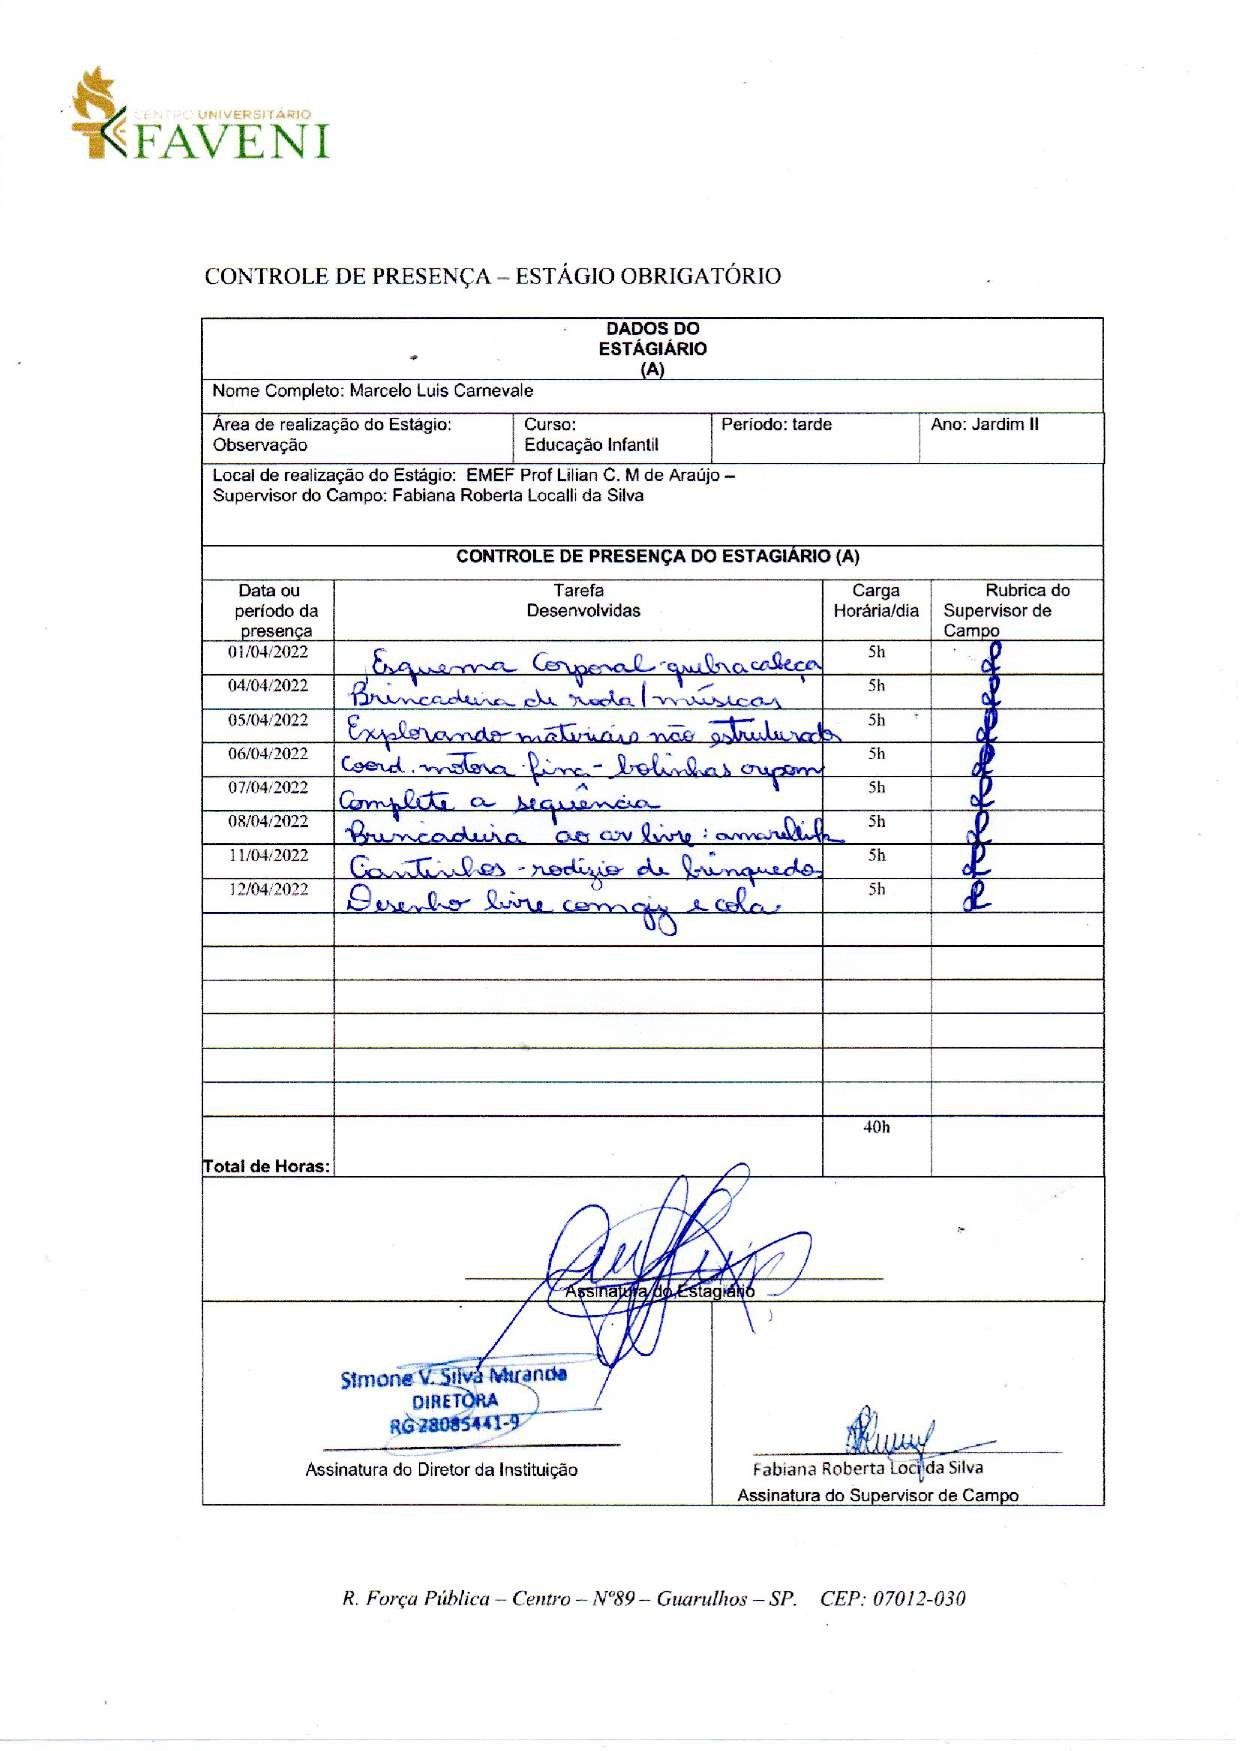 CENTRO UNIVERSITÁRIO
FAVENI
CONTROLE DE PRESENÇA – ESTÁGIO OBRIGATÓRIO
DADOS DO
ESTÁGIÁRIO
(A)
Nome Completo: Marcelo Luis Carnevale
Área de realização do Estágio: Curso: Período: tarde Ano: Jardim II
Observação Educação Infantil
Local de realização do Estágio: EMEF Prof Lilian C. M de Araújo –
Supervisor do Campo: Fabiana Roberta Localli da Silva
CONTROLE DE PRESENÇA DO ESTAGIÁRIO (A)
Data ou Tarefa Carga Rubrica do
período da Desenvolvidas Horária/dia Supervisor de
presença Campo
01/04/2022 Esquema Corporal-quebracabeça 5h
04/04/2022 Brincadeira de roda/músicas 5h
05/04/2022 Explorando materiais não estruturados 5h
06/04/2022 Coord. motora fina - bolinhas crepom 5h
07/04/2022 Complete a sequência 5h
08/04/2022 Brincadeira ao ar livre: amarelinha 5h
11/04/2022 Cantinhos - rodízio de brinquedos 5h
12/04/2022 Desenho livre com giz e cola. 5h
40h
Total de Horas:
Assinatura do Estagiário
Simone V. Silva Miranda
DIRETORA
RG 28085441-9
Assinatura do Diretor da Instituição
Fabiana Roberta Loci da Silva
Assinatura do Supervisor de Campo
R. Força Pública – Centro – Nº89 – Guarulhos – SP. CEP: 07012-030